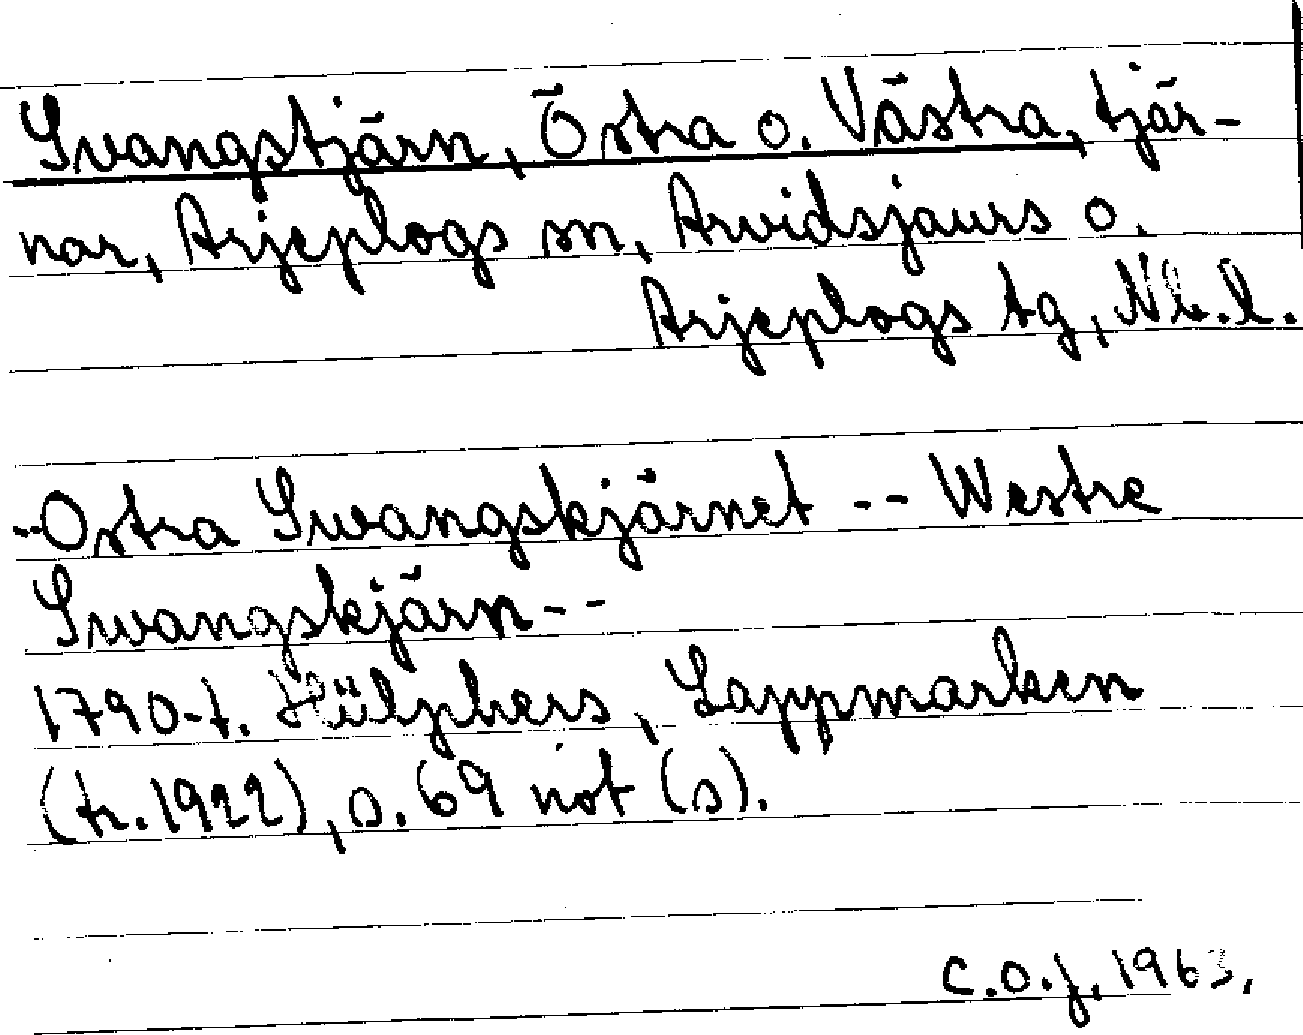 Svangstjärn, Östra o. Västra, tjär-
nar, Arjeplogs sn, Arvidsjaurs o.
Arjeplogs tg, Nb. l.
--Ostra Swangskjärnet -- Westre
Swangskjärn--
1790-t. Hülphers, Lappmarken
(tr. 1922), s. 69 not (s).
C.O.J. 1963.